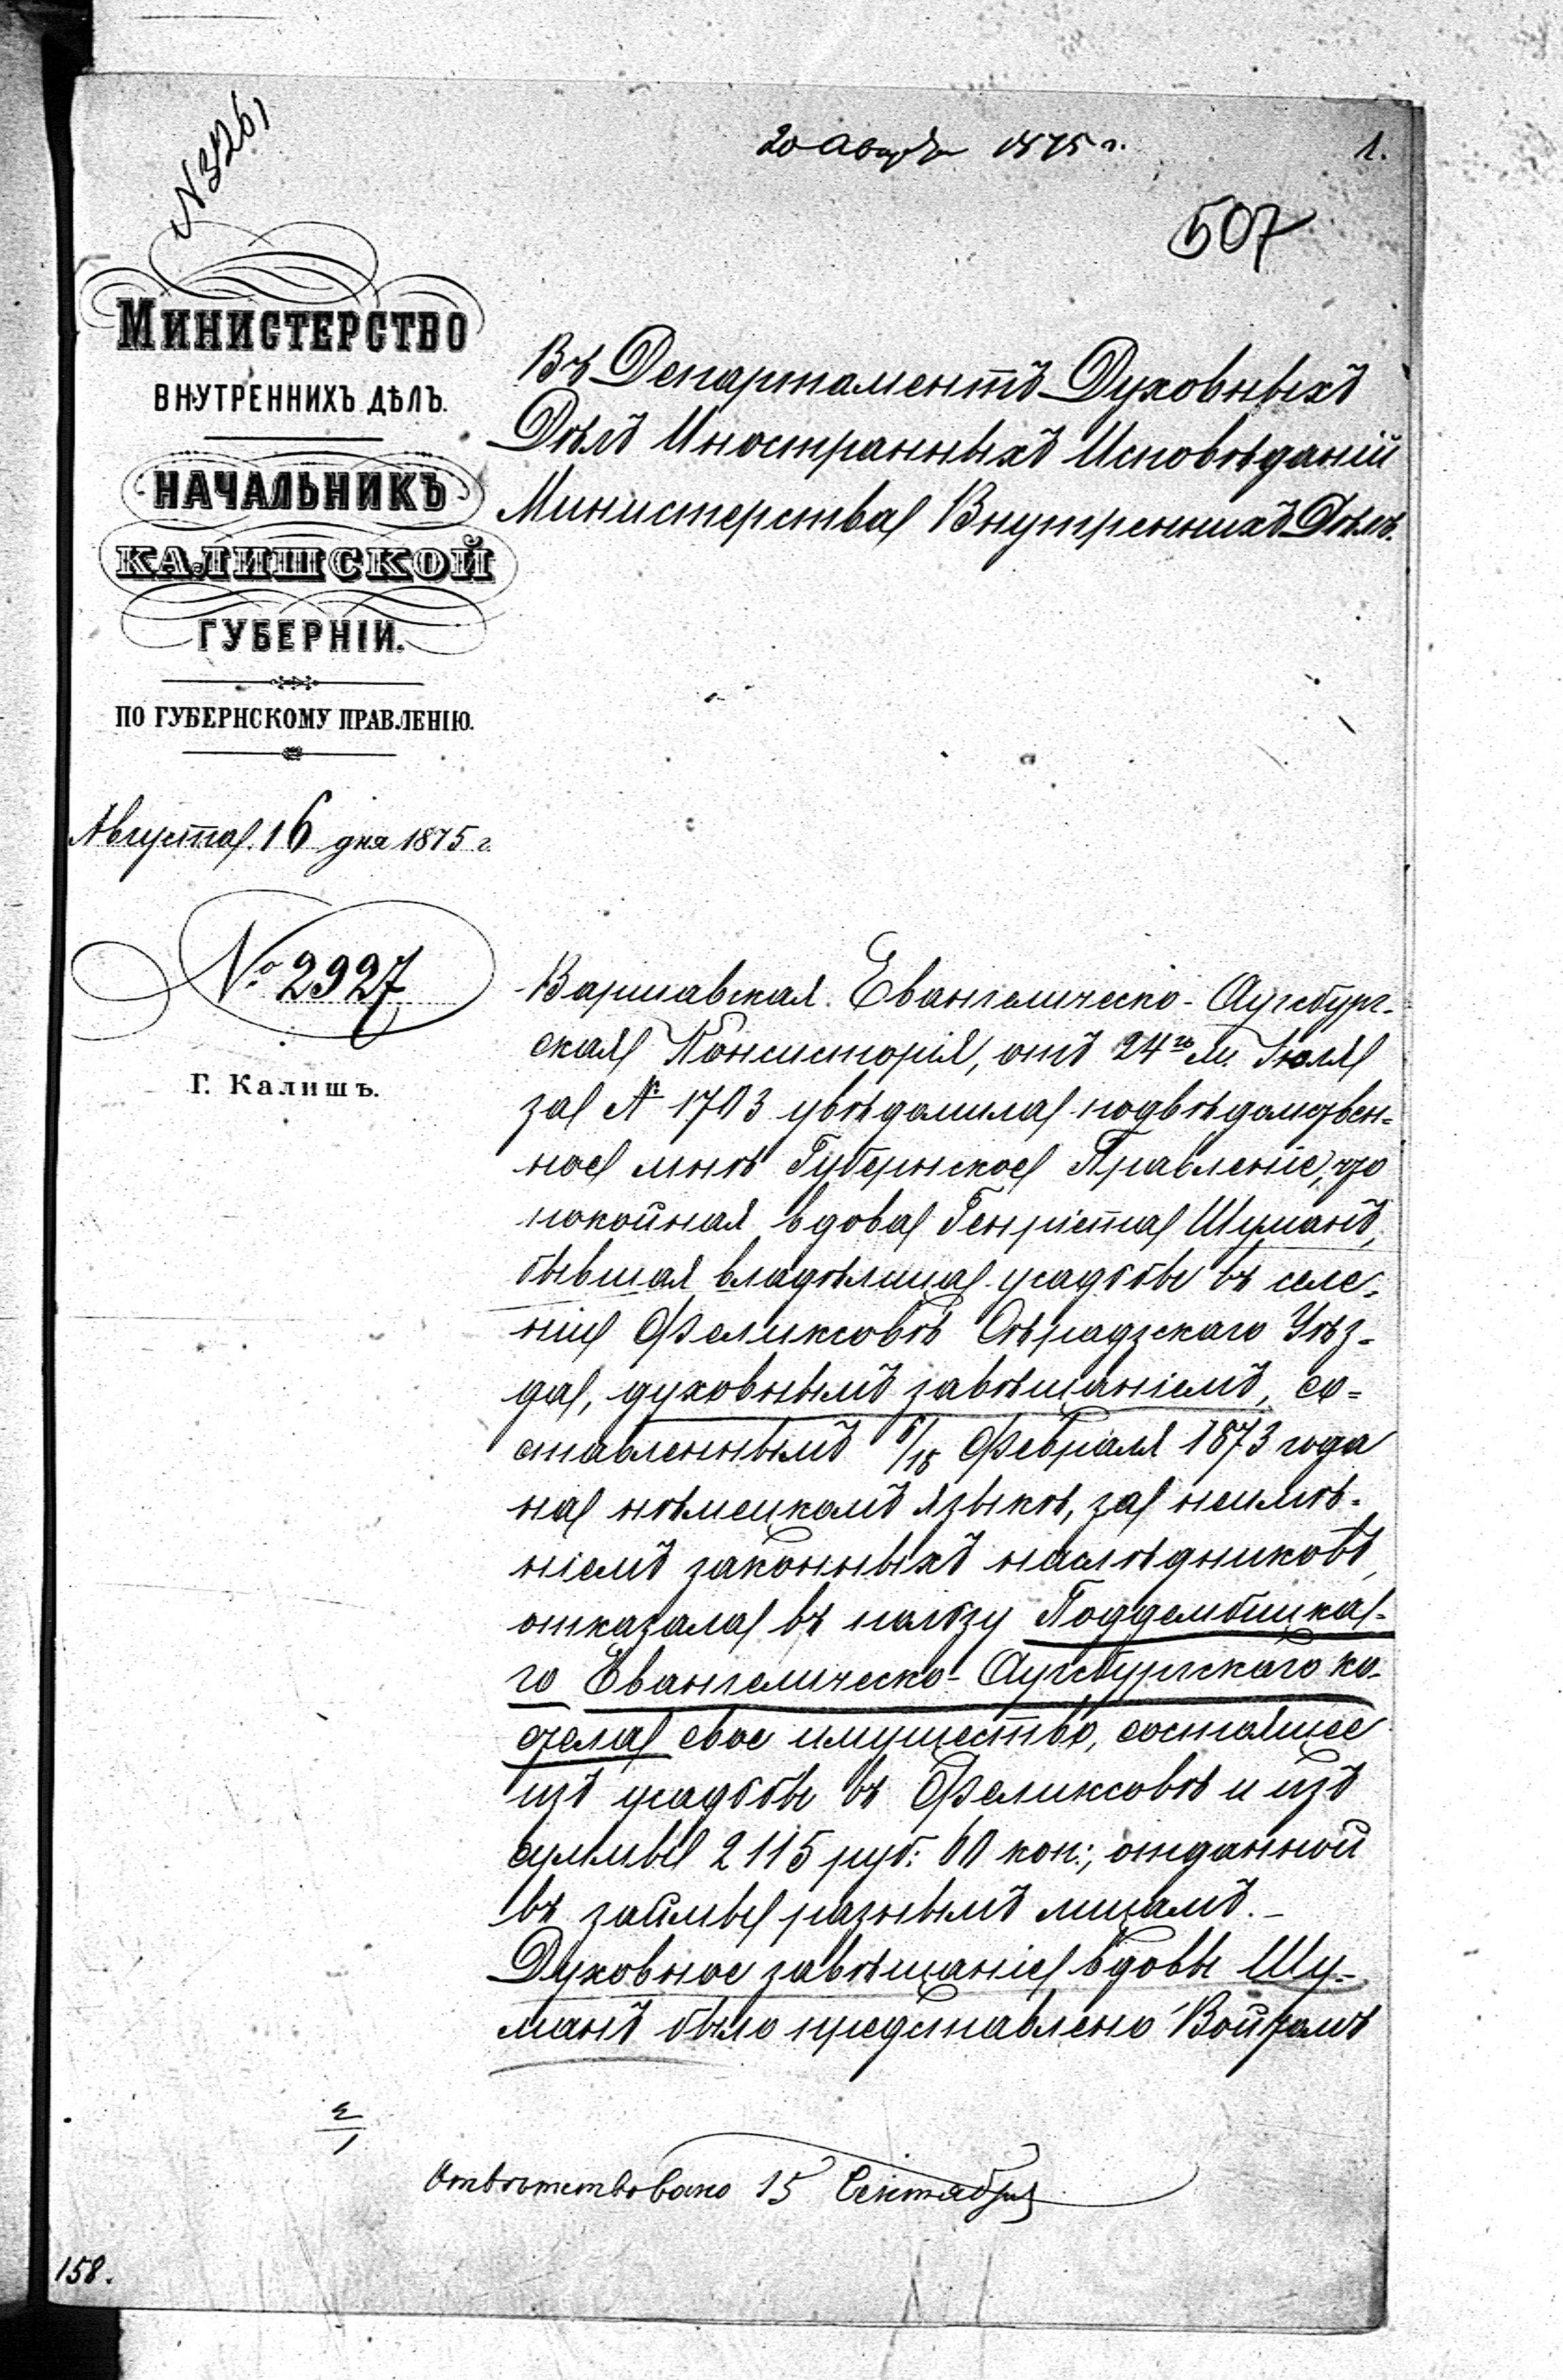 № 3261
20 Августа 1875 г.
1.
507
МИНИСТЕРСТВО
ВНУТРЕННИХЪ ДѢЛЪ.
НАЧАЛЬНИКЪ
КАЛИШСКОЙ
ГУБЕРНІИ.
ПО ГУБЕРНСКОМУ ПРАВЛЕНІЮ.
Августа 16 дня 1875 г.
№ 2927
Г. Калишъ.
Въ Департаментъ Духовныхъ
Дѣлъ Иностранныхъ Исповѣданій
Министерства Внутреннихъ Дѣлъ.
Варшавская Евангелическо-Аугсбург-
ская Консисторія, отъ 24го м. Іюля
за № 1703 увѣдомила подвѣдомствен-
ное мнѣ Губернское Правленіе, что
покойная вдова Генріета Шуманъ,
бывшая владѣлица усадьбы въ селе-
ніи Феликсовѣ Сѣрадзскаго Уѣз-
да, духовнымъ завѣщаніемъ, со-
ставленнымъ 6/18 Февраля 1873 года
на нѣмецкомъ языкѣ, за неимѣ-
ніемъ законныхъ наслѣдниковъ,
отказала въ пользу Поддембицка-
го Евангелическо-Аугсбургскаго ко-
стела свое имущество, состоящее
изъ усадьбы въ Феликсовѣ и изъ
суммы 2115 руб: 60 коп:, отданной
въ займы разнымъ лицамъ. –
Духовное завѣщаніе вдовы Шу-
манъ было представлено Войтомъ
Отвѣтствовано 15 Сентября
158.